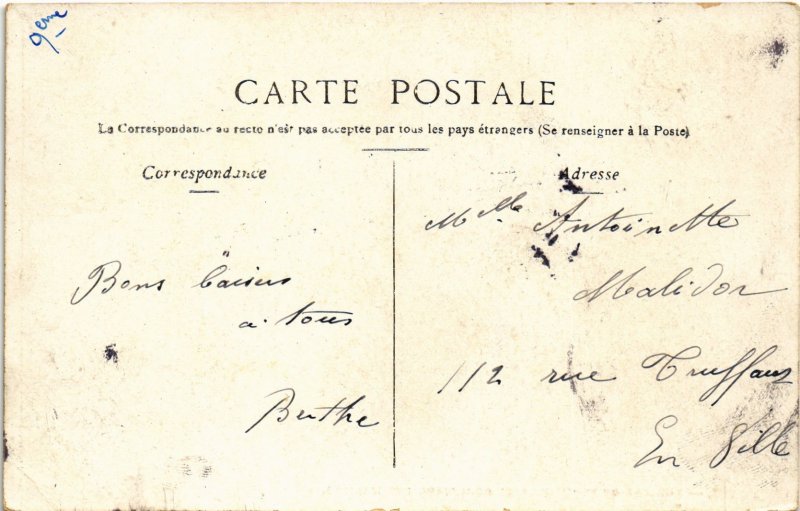 9eme
CARTE POSTALE
La Correspondance au recto n'est pas acceptée par tous les pays étrangers (Se renseigner à la Poste)
Correspondance
Adresse
Bons baisers
à tous
Berthe
Mlle Antoinette
Malidor
112 rue Truffaut
En Ville